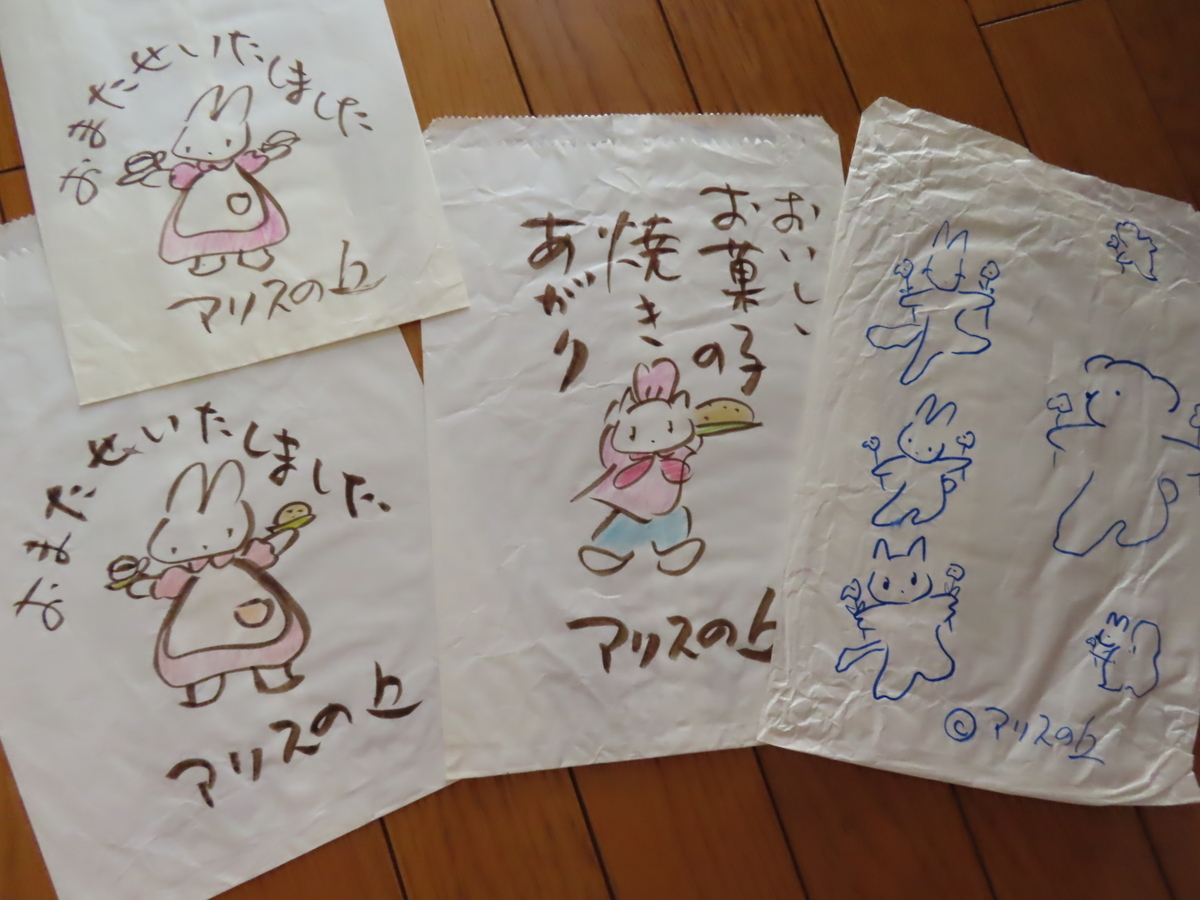 おまたせいたしました
アリスの丘
おまたせいたしました
アリスの丘
おいしい
お菓子の
焼き
あがり
アリスの丘
©アリスの丘